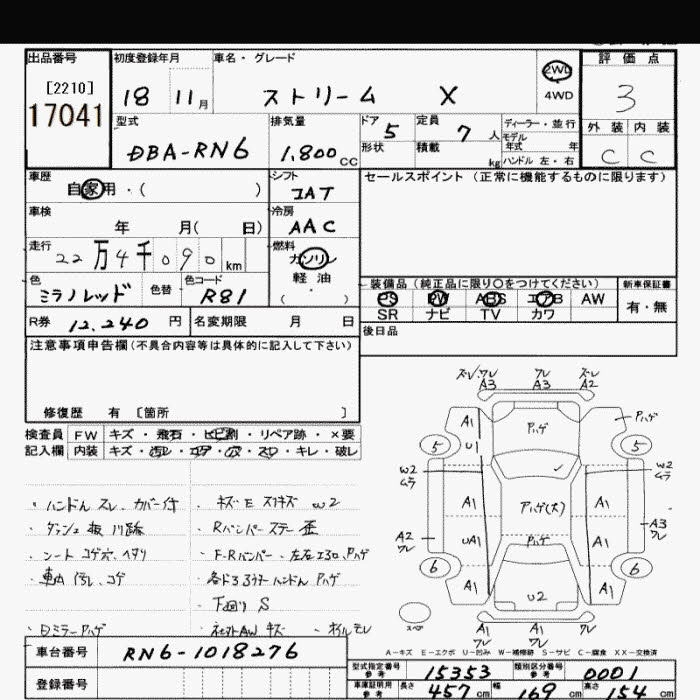 出品番号
[2210]
17041
初度登録年月
18 11月
車名・グレード
ストリーム X
2WD
4WD
評価点
3
外装 内装
C C
型式
DBA-RN6
排気量
1.800cc
ドア 5
形状
定員 7人
積載 kg
ディーラー・並行
モデル
年式 年
ハンドル 左・右
車歴
自家用・( )
シフト
COAT
セールスポイント (正常に機能するものに限ります)
車検
年 月( 日)
冷房
AAC
走行
22万4千090km
燃料
ガソリン
軽油
( ・ )
色
ミラノレッド
色替
色コード
R81
装備品 (純正品に限り○をつけてください)
新車保証書
PS PW ABS エアB AW
有・無
SR ナビ TV カワ
R券 12.240円
名変期限 月 日
後日品
注意事項申告欄(不具合内容等は具体的に記入して下さい)
修復歴 有 〔箇所 〕
検査員 FW キズ・飛石・ヒビ割・リペア跡・×要
記入欄 内装 キズ・汚レ・コゲ・穴・スレ・キレ・破レ
・ハンドルスレ、カバー付
・ダッシュ板 跡
・シート コゲ穴、ヘタリ
・車内 汚レ、コゲ
・日ミラーPハゲ
・キズE スリキズ W2
・Rバンパーステー歪
・F-Rバンパー、左右エアロ、Pハゲ
・各ドアアウターハンドル Pハゲ
・下回りS
・ネセットAW キズ
・オイルモレ
ズレ、ワレ ワレ ズレ
A3 A3 A2
A1 Pハゲ Pハゲ
5 U1 5
W2 ムラ W2 ムラ
A1 Pハゲ(大) A1
A2 ワレ UA1 Pハゲ A1 A3 ワレ
6 6
A1 U2 A1
スペア
A1 A1 A1
ワレ ワレ
A-キズ E-エクボ U-凹み W-補修跡 S-サビ C-腐食 XX-交換済
車台番号 RN6-1018276
登録番号
型式指定番号
参考
15353
類別区分番号
参考
0001
車庫証明用
参考
長さ 457cm 幅 169cm 高さ 154cm